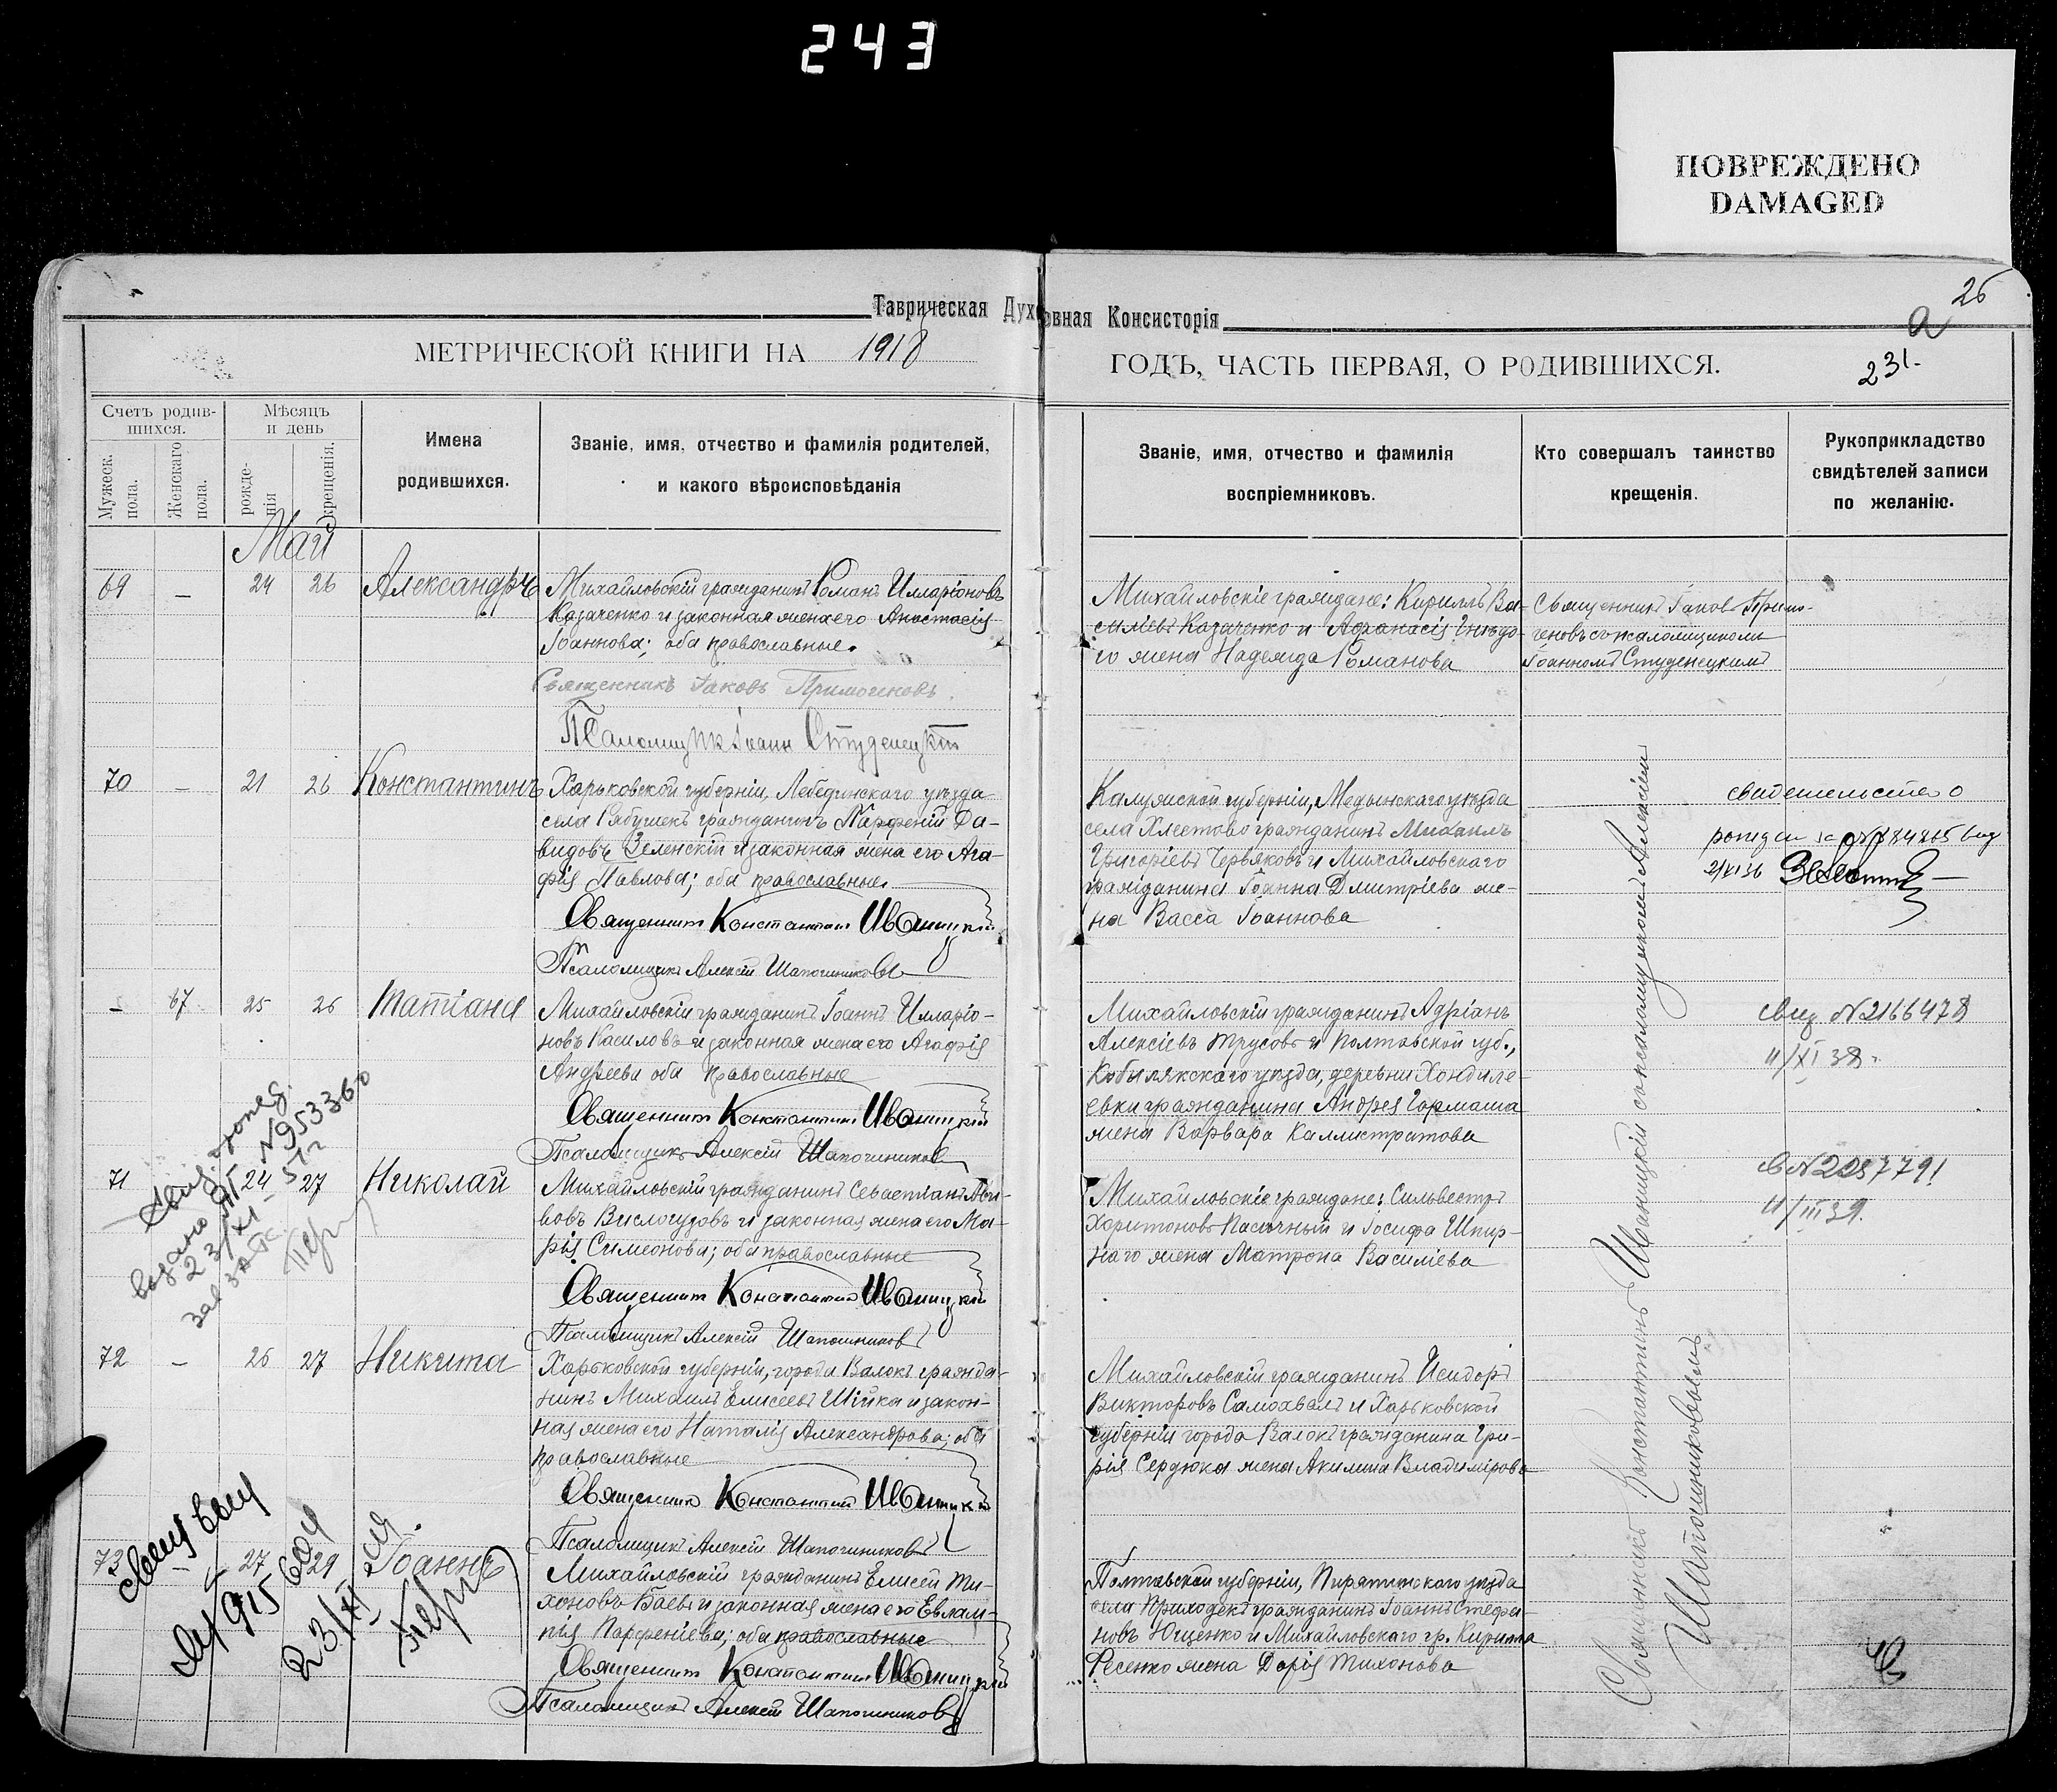 243
ПОВРЕЖДЕНО
DAMAGED
Таврическая Духовная Консисторія
26
a
МЕТРИЧЕСКОЙ КНИГИ НА 1918
ГОДЪ, ЧАСТЬ ПЕРВАЯ, О РОДИВШИХСЯ.
231.
Счетъ родив-
шихся.
Мужеск.
пола.
Женскаго
пола.
Мѣсяцъ
и день
рожде-
нія
крещенія.
Имена
родившихся.
Званіе, имя, отчество и фамилія родителей,
и какого вѣроисповѣданія
Званіе, имя, отчество и фамилія
воспріемниковъ.
Кто совершалъ таинство
крещенія.
Рукоприкладство
свидѣтелей записи
по желанію.
Май
69 – 24 26 Александръ
Михайловскій гражданинъ Романъ Илларіоновъ
Казаченко и законная жена его Анастасія
Іоаннова; оба православные.
Священникъ Іаковъ
Псаломщик Іоанн Студенецкій
Михайловскіе граждане: Кирилъ Ва-
силіевъ Казаченко и Афанасія
жена Надежда Романова
Священникъ Іаковъ
съ псаломщикомъ
Іоанномъ Студенецкимъ
70 – 21 26 Константинъ
Харьковской губерніи, Лебединскаго уѣзда
села Рябушекъ гражданинъ Парфеній Да-
видовъ Зеленскій и законная жена его Ага-
фія Павлова; оба православные.
Священникъ Константинъ Иваницкій
Псаломщикъ Алексій Шапошниковъ
Калужской губерніи, Медынскаго уѣзда
села гражданинъ Михаилъ
Григоріевъ Червяковъ и Михайловскаго
гражданина Іоанна Дмитріева же-
на Васса Іоаннова
свидетельство о
– 67 25 26 Татіана
Михайловскій гражданинъ Іоаннъ Илларіо-
новъ Касиловъ и законная жена его Агафія
Андреева оба православные
Священникъ Константинъ Иваницкій
Псаломщикъ Алексій Шапошниковъ
Михайловскій гражданинъ Адріанъ
Алексіевъ Трусовъ и Полтавской губ.,
Кобелякскаго уѣзда, деревни
гражданина Андрея Гармаша
жена Варвара Каллистратова
свид №2166478
11/XI 38
71 24 27 Николай
Михайловскій гражданинъ Севастіанъ
Вислогузовъ и законная жена его Ма-
рія Симеонова; оба православные
Священникъ Константинъ Иваницкій
Псаломщикъ Алексій Шапошниковъ
Михайловскіе граждане: Сильвестръ
Харитоновъ Пасичный и Іосифа Шпир-
наго жена Матрона Василіева
св №2257791
11/III 39.
№953360
23/XI
72 – 26 27 Никита
Харьковской губерніи, города Валокъ гражда-
нинъ Михаилъ Елисеевъ Шійка и закон-
ная жена его Наталія Александрова; оба
православные
Священникъ Константинъ Иваницкій
Псаломщикъ Алексій Шапошниковъ
Михайловскій гражданинъ Исидоръ
Викторовъ Самохвалъ и Харьковской
губерніи города Валокъ гражданина
Сердюка жена Акилина Владимірова
73 – 27 29 Іоаннъ
Михайловскій гражданинъ Елисей Ти-
хоновъ Баевъ и законная жена его Евлам-
пія Парфеніева; оба православные
Священникъ Константинъ Иваницкій
Псаломщикъ Алексій Шапошниковъ
Полтавской губерніи, Пирятинскаго уѣзда
села Приходекъ гражданинъ Іоаннъ Стефа-
новъ Ющенко и Михайловскаго гр. Кирилла
Фесенко жена Дарія Тихонова
№ 915604
23/XI
Священникъ Константинъ Иваницкій съ псаломщикомъ Алексіемъ
Шапошниковымъ